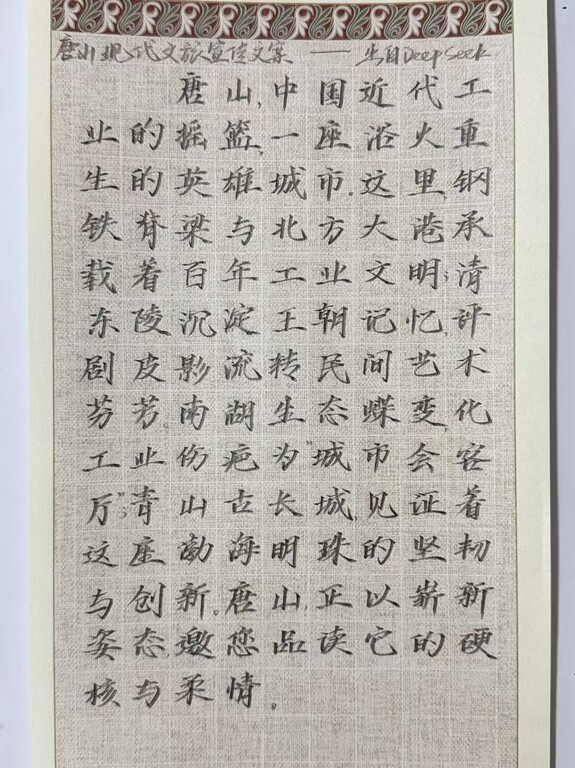 唐山现代文旅宣传文案 —— 生自DeepSeek
唐山,中国近代工
业的摇篮,一座浴火重
生的英雄城市.这里,钢
铁脊梁与北方大港承
载着百年工业文明;清
东陵沉淀王朝记忆,评
剧皮影流转民间艺术
芬芳。南湖生态蝶变,化
工业伤疤为"城市会客
厅";青山古长城,见证着
这座渤海明珠的坚韧
与创新。唐山,正以崭新
姿态邀您品读它的硬
核与柔情。